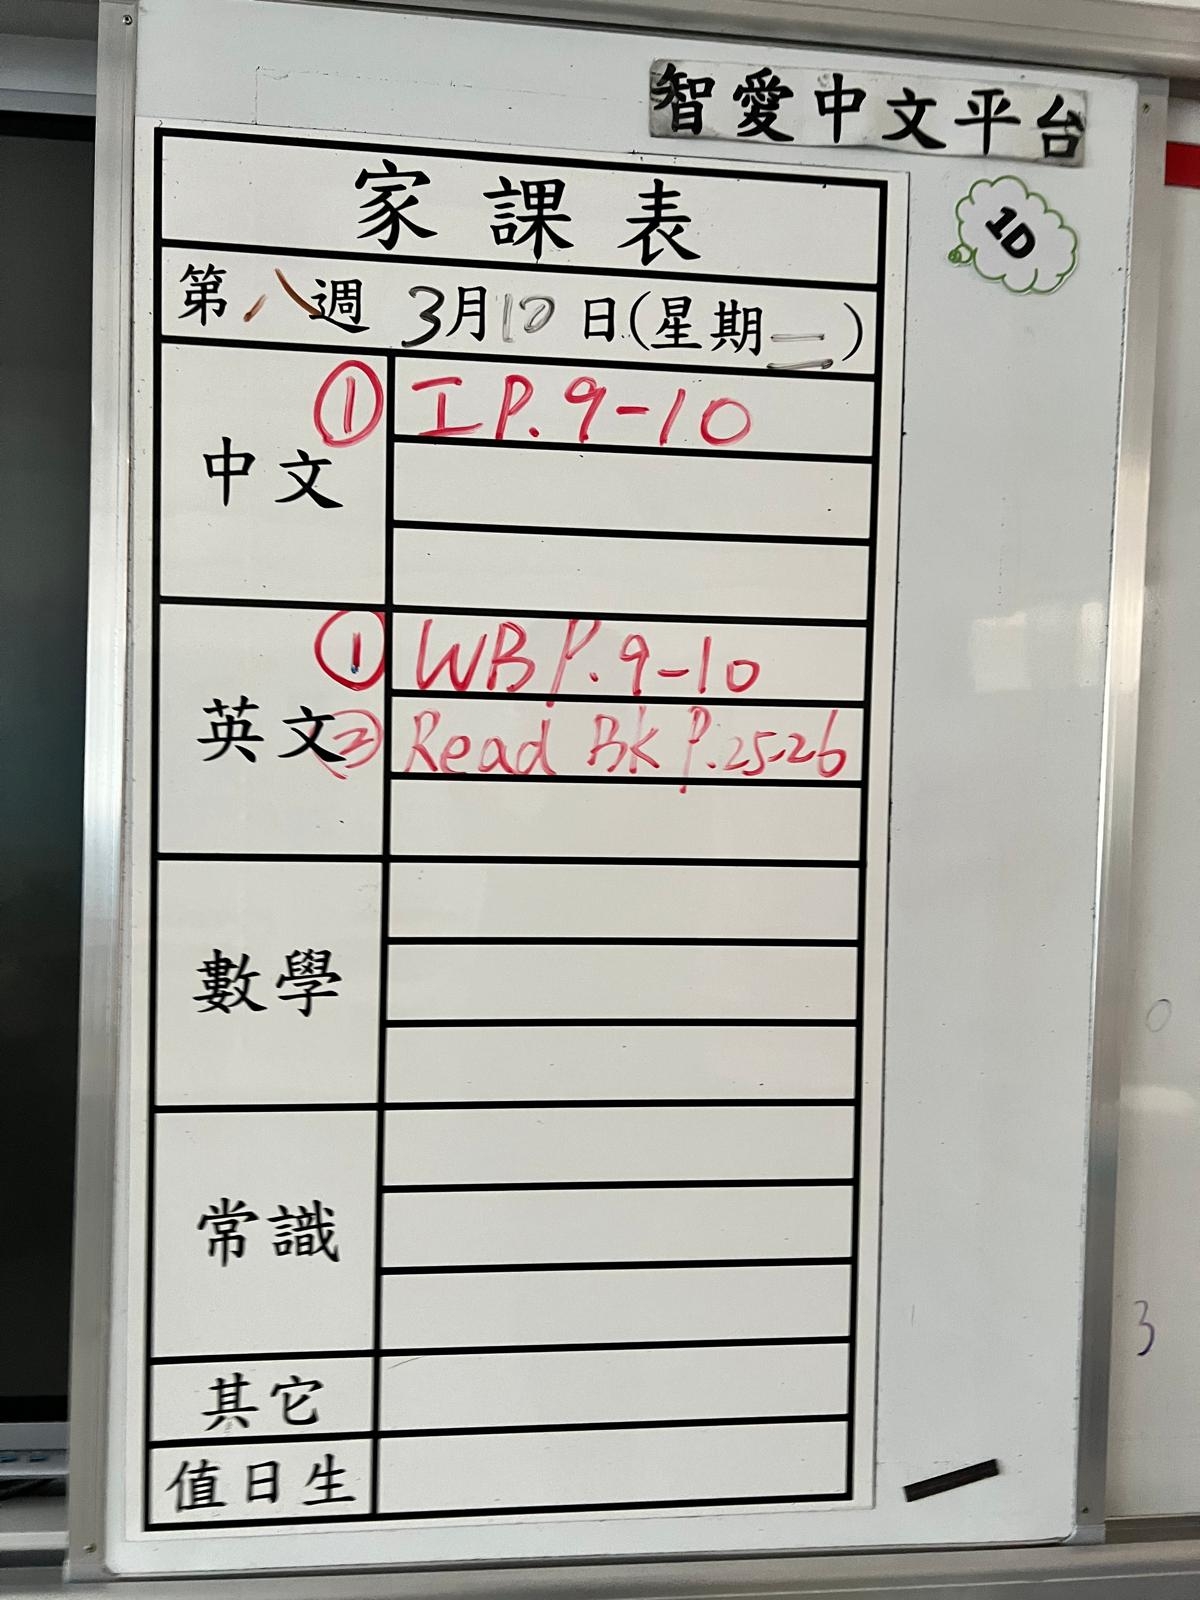 智愛中文平台
1D
家課表
第八週 3月10日(星期二)
中文
① 工 P.9-10
英文
① WB P.9-10
② Read BK P.25-26
數學
常識
其它
值日生
3